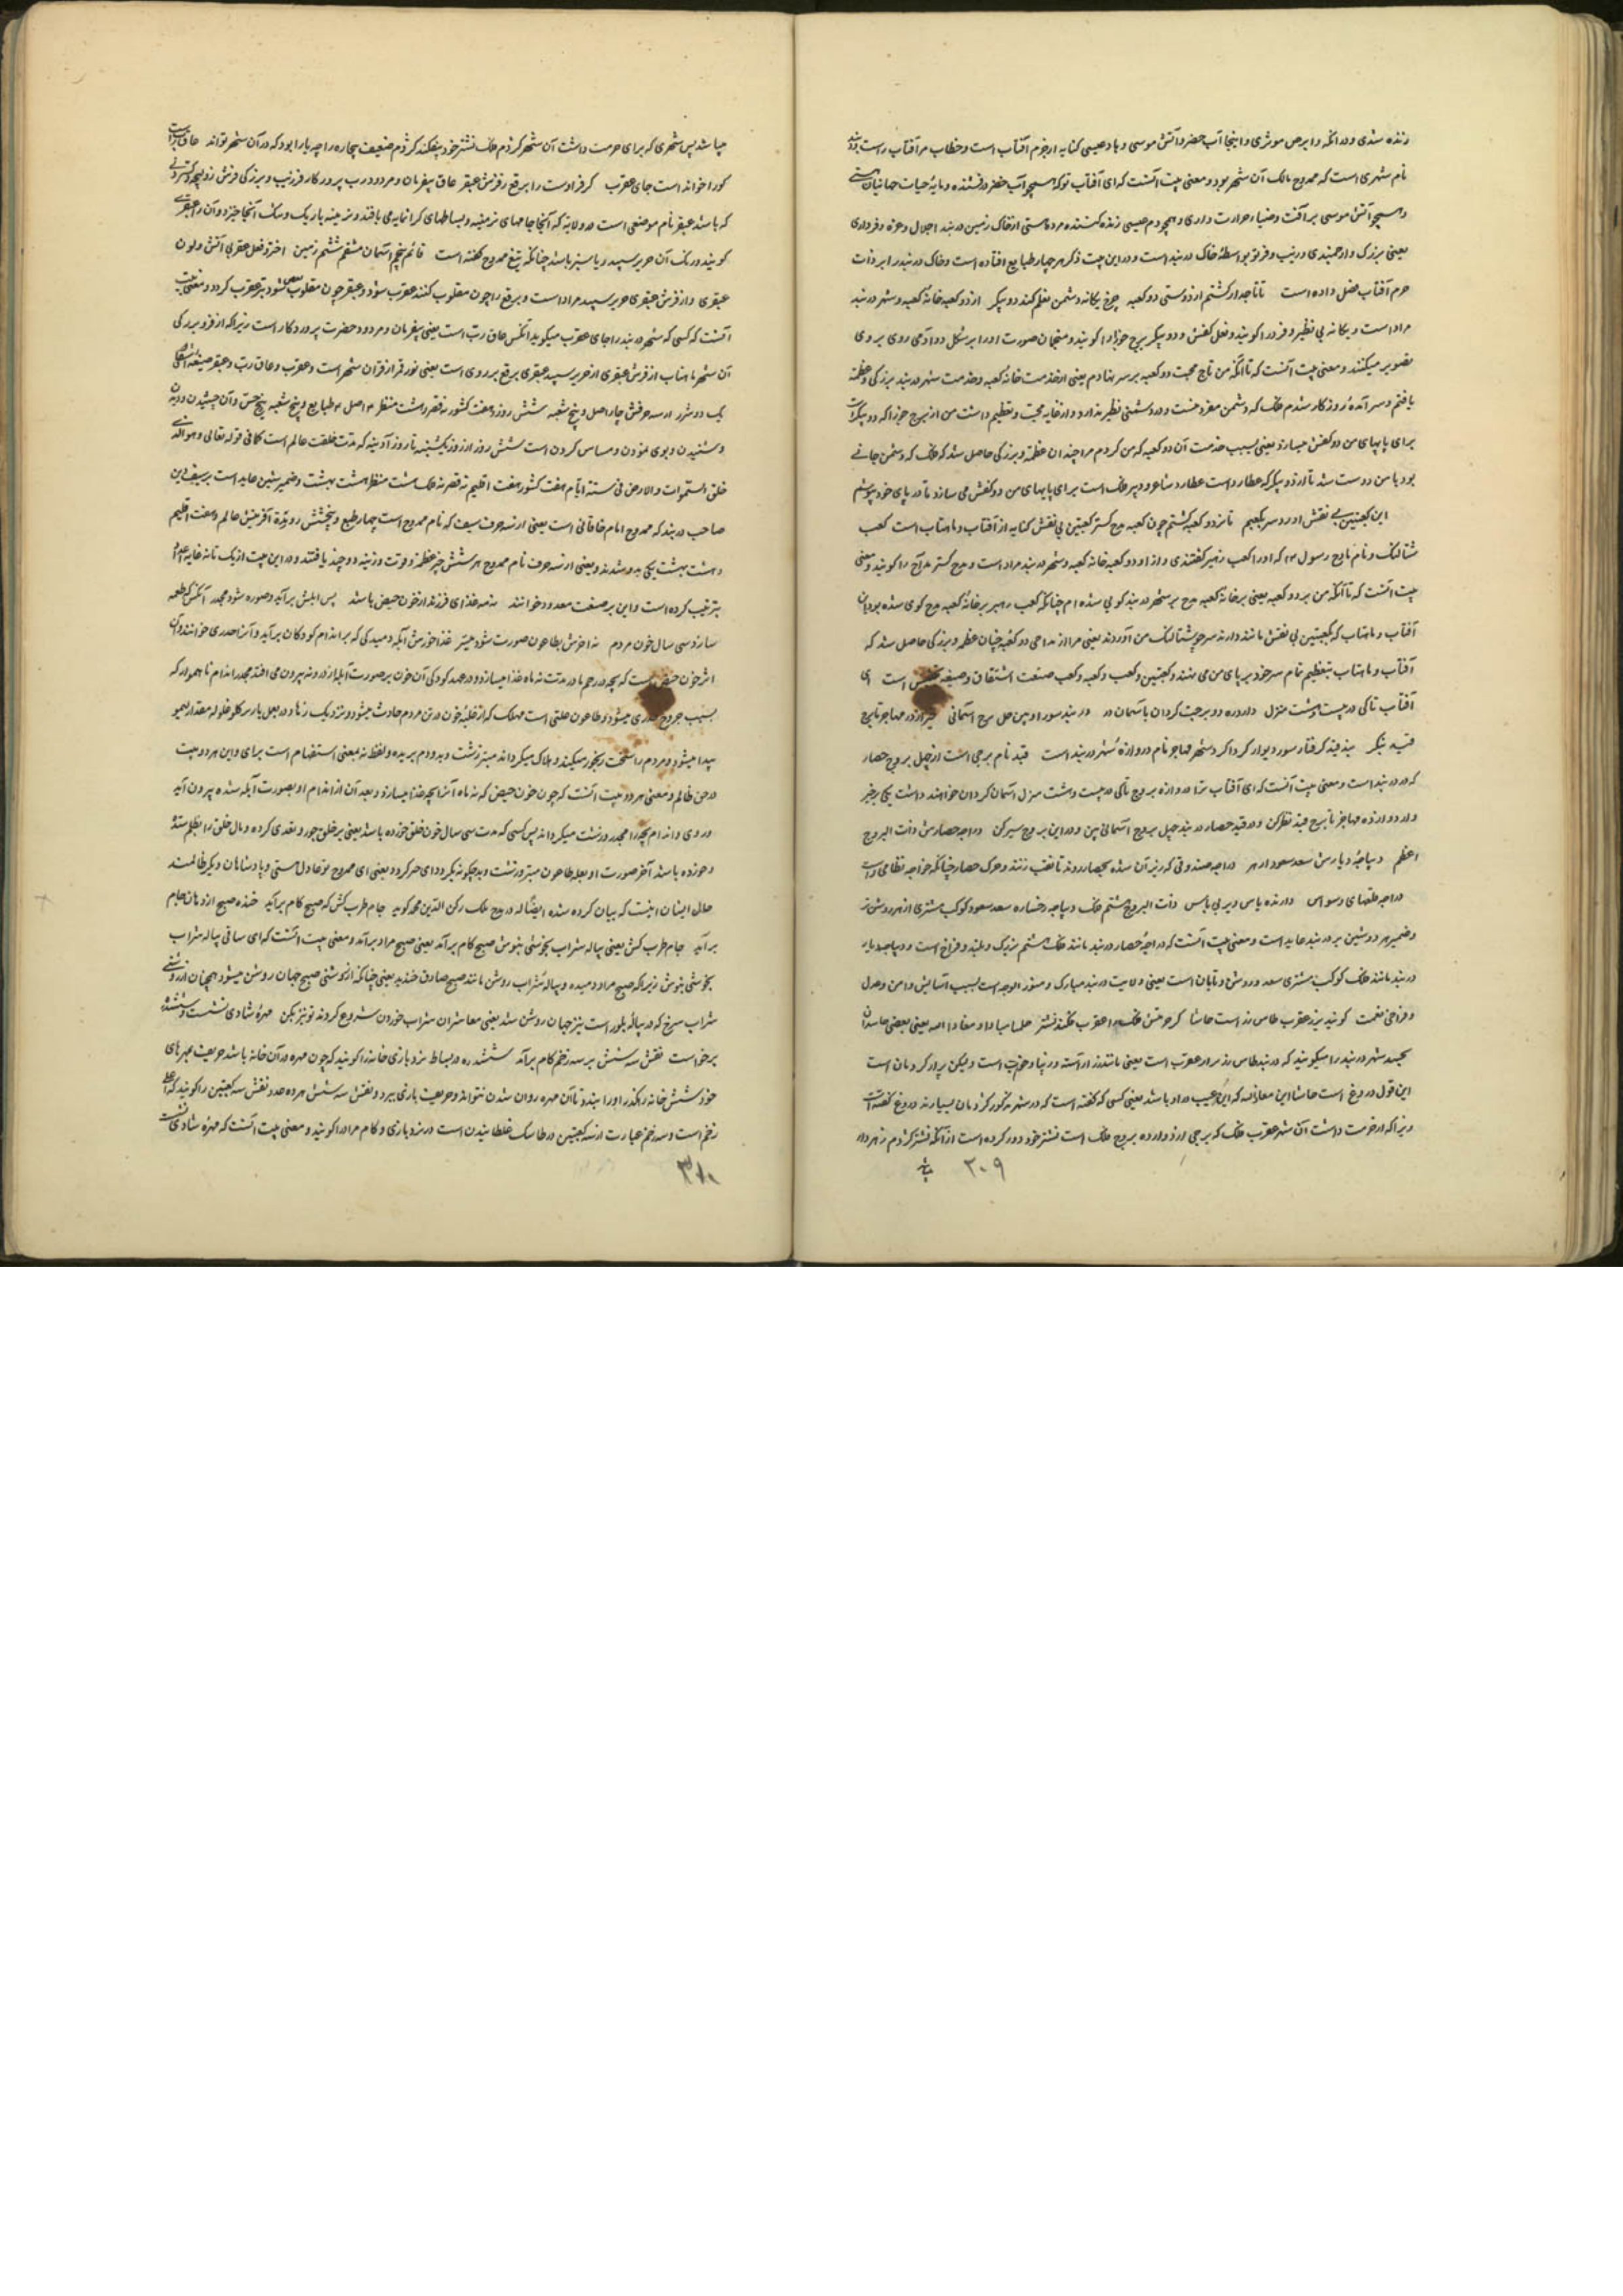 زنده شدی و در اکمه و ابرص موثری و اینجا آب خضر و آتش موسی و باد عیسی کنایه از جرم آفتاب است و خطاب مر آفتاب راست
نام شهری است که ممدوح مالک آن شهر بود و معنی بیت آنست که ای آفتاب تو که همچو آب خضر درخشنده و مایهٔ حیات جهانیان
و همچو آتش موسی بر آفت و ضیاء و حرارت داری و همچو دم عیسی زنده کننده مرده هستی از خاک زمین دربند اجلال و عزه و فر داری
یعنی بزرگ و ارجمندی و زینب و فر تو بواسطهٔ خاک دربند است و در این بیت ذکر هر چهار طبایع افتاده است و خاک دربند را بر ذات
جرم آفتاب فضل داده است تا تاجدار گشتم از دوستی دو کعبه چرخ یگانه دشمن نعلم کند دو پیکر از دو کعبه خانهٔ کعبه و شهر دربند
مراد است و یگانه بی نظیر و فرد را گویند و نعل کفش و دو پیکر برج جوزا را گویند و منجمان صورت او را بر شکل دو آدمی روی بروی
تصویر میکنند و معنی بیت آنست که تا آنکه من تاج محبت دو کعبه بر سر نهادم یعنی از خدمت خانهٔ کعبه و خدمت شهر دربند بزرگی و عظمة
یافتم و سرآمدهٔ روزگار شدم فلک که دشمن مفرد منست و در دشمنی نظیر ندارد و از غایه محبت و تعظیم داشت من از برج جوزا که دو پیکر است
برای پایهای من دو کفش میسازد یعنی بسبب خدمت آن دو کعبه که من کردم مرا چندان عظمة و بزرگی حاصل شد که فلک که دشمن جانی
بود با من دوست شد تا از دو پیکر که عطارد است عطارد شاعر و دبیر فلک است برای پایهای من دو کفش می سازد تا در پای خود پوشم
این کعبتین بی نقش آورد سر بکعبم تا بر دو کعبه گشتم چون کعبه مدح گستر کعبتین بی نقش کنایه از آفتاب و ماهتاب است کعب
شتالنگ و نام مادح رسول که او را کعب زهیر گفتندی و از او دو کعبه خانه کعبه و شهر دربند مراد است و مدح گستر مداح را گویند و معنی
بیت آنست که تا آنکه من بر دو کعبه یعنی بر خانهٔ کعبه مدح بر شهر دربند گوی شده ام چنانکه کعب زهیر بر خانهٔ کعبه مدح گوی شده بود
آفتاب و ماهتاب که بکعبتین بی نقش مانند دارند سر خود بشتالنگ من آوردند یعنی مرا از مداحی دو کعبه چنان عظمة و بزرگی حاصل شد که
آفتاب و ماهتاب بتعظیم تمام سر خود بر پای من می نهند و کعبتین و کعب و کعبه و کعب صنعت اشتقاق و صیغه تجنیس است ای
آفتاب تا کی در بیست و هشت منزل دارد ره دو برجت گردان باسمان در دربند سور او بین چل برج آسمانی از در مهاجر تا برج
قید بنگر بند قید گرفتار سور دیوار گرداگرد شهر مهاجر نام دروازهٔ شهر دربند است قید نام برجی است از چهل بروج حصار
که در دربند است و معنی بیت آنست که ای آفتاب ترا دوازده بروج تا کی در بیست و هشت منزل آسمان گردان خواهند داشت یکی برخیز
و از دروازه مهاجر تا برج قید نظر کن و در قید حصار دربند چهل بروج آسمانی بین و در این بروج سیر کن دراجه حصارش ذات البروج
اعظم دیباجهٔ دیارش سعد سعود ازهر دراجه صندوقی که زیر آن شده بحصار روند تا نقب زنند و جرک حصار چنانکه خواجه نظامی راست
دراجه طلقهای وسواس دارنده پاس و دیر بی پاس ذات البروج هشتم فلک دیباجه رخساره سعد سعود کوکب مشتری ازهر روشن تر
و ضمیر هر دو شین بر دربند عاید است و معنی بیت آنست که دراجهٔ حصار دربند مانند فلک هشتم بزرگ و بلند و فراخ است و دیباجه دیار
دربند مانند فلک کوکب مشتری سعد و روشن و تابان است یعنی ولایت دربند مبارک و منور الوجه است بسبب آسایش و امن و عدل
و فراخی نعمت گویند بیز عقرب طاس زر است حاشا کر حرمتش فلک را عقرب فکند نشتر
بحسد شهر دربند را میگویند که دربند طاس زر سرار عقرب است یعنی مانند زر آراسته و زیبا و خوب است ولیکن پر از کژدمان است
این قول دروغ است حاشا این معاذالله که این عیب در او باشد یعنی کسی که گفته است که در شهر مذکور کژدمان بسیارند دروغ گفته است
زیرا که از حرمت داشت آن شهر عقرب فلک که برجی از دوازده بروج فلک است نشتر خود دور کرده است از آنکه نشتر کژدم زهر دار
۳۰۹
میباشد پس شهری که برای حرمت داشت آن شهر کژدم فلک نشتر خود بیفکند کژدم ضعیف بیچاره را چه یارا بود که در آن شهر تواند
کو را خوانده است جای عقرب کز فراوست را برقع ز فرش عبقر عاق بیفرمان و مردود رب پروردگار فر زینب و بزرگی فرش
که باشد عبقر نام موضعی است در ولایة که آنجا جامهای نرمینه و بساطهای گرانمایه می بافند و نرمینه باریک و سبک آنجا خیزد و آنرا عبقری
گویند و رنگ آن حریر سپید و یا سبز باشد چنانکه تیغ ممدوح گفته است قائم پنجم آسمان مشتم ششم زمین اختر و فعل عقربی آتش و لون
عبقری و از فرش عبقری حریر سپید مراد است و برقع را چون مقلوب کنند عقرب شود و عبقر چون مقلوب بعض شود نیز عقرب گردد و معنی بیت
آنست که کسی که شهر دربند را جای عقرب میگوید آنکس عاق رب است یعنی بیفرمان و مردود حضرت پروردگار است زیرا که از فر و بزرگی
آن شهر ماهتاب از فرش عبقری از حریر سپید عبقری برقع بر روی است یعنی نور قمر از قران شهر است و عقرب و عاق رب و عبقر صیغه
یک دو شرر از سه حرفش چار اصل و پنج شعبه شش روز و هفت کشور نه قصر و هشت منظر ۴ اصل ۴ طبایع و پنج شعبه پنج حس و آن چشیدن و دیدن
و شنیدن و بوی نمودن و مساس کردن است شش روز از روز یکشنبه تا روز آدینه که مدت خلقت عالم است کما فی قوله تعالی و هو الذی
خلق السموات و الارض فی ستة ایام هفت کشور هفت اقلیم نه قصر نه فلک هشت منظر هشت بهشت و ضمیر شین عاید است بر سیف الدین
صاحب دربند که ممدوح امام خاقانی است یعنی از سه حرف سیف که نام ممدوح است چهار طبع و پنج حس و شش روز مدة آفرینش عالم و هفت اقلیم
و هشت بهشت یکی بدو شدند و یعنی از سه حرف نام ممدوح هر شش چیز عظمة و قوت و زینه دو چند یافتند و در این بیت از یک تا نه
بترتیب کرده است و این بر صنعت معدود خوانند نه مه غذای فرزند از خون حیض باشد پس آبلش برآید و صوره شود مجدر آنکس که طعمه
سازد سی سال خون مردم نه آخرش بطاعون صورت شود مبتر غذا خورش آبله دمیدگی که بر اندام کودکان برآید و آنرا جدری خوانند
اثر خون حیض است که بچه در رحم مادر مدت نه ماه غذا میسازد و در عهد کودکی آن خون بر صورت آبله از درونه بیرون می افتد مجدر اندام ناهموار که
بسبب جروح جدری میشود و طاعون علتی است مهلک که از غلبهٔ خون در تن مردم حادث میشود و نزدیک رنها و در بغل یا در گلو غلوله مقدار لیمو
پیدا میشود و مردم را سخت رنجور میکند و هلاک میگرداند مبتر زشت و بد و دم بریده و لفظ نه بمعنی استفهام است برای و این هر دو بیت
در حق ظالم و معنی هر دو بیت آنست که چون خون حیض که نه ماه آنرا بچه غذا میسازد و بعد آن از اندام او بصورت آبله شده بیرون آید
و روی و اندام بچه را مجدر و زشت میگرداند پس کسی که مدت سی سال خون خلق خورده باشد یعنی بر خلق جور و تعدی کرده و مال خلق را بظلم ستده
و خورده باشد آخر صورت او بعلة طاعون مبتر و زشت و بد چگونه نگردد ای هر گردد یعنی ای ممدوح تو عادل هستی و پادشاهان دیگر ظالمند
حال ایشان اینست که بیان کرده شده ایضا له در مدح ملک رکن الدین محمد گوید جام طرب کش که صبح کام برآید خنده صبح از دهان جام
برآید جام طرب کش یعنی پیاله شراب بخوشی بنوش صبح کام برآمد یعنی صبح مراد برآمد و معنی بیت آنست که ای ساقی پیاله شراب
بخوشی بنوش زیرا که صبح مراد دمیده و پیالهٔ شراب روشن مانند صبح صادق خندید یعنی چنانکه از روشنی صبح جهان روشن میشود همچنان از روشنی
شراب سرخ که در پیالهٔ بلور است نیز جهان روشن شد یعنی معاشران شراب خوردن شروع کردند تو نیز بکن مهرهٔ شادی نشست و ششدره
برخواست نقش سه شش بر سه زخم کام برآمد ششدره در بساط نرد بازی خانه را گویند که چون مهره در آن خانه باشد حریف مهرهای
خود شش خانه رهگذر او را ببندد تا آن مهره روان شدن نتواند و حریف بازی ببرد و نقش سه شش هر ده عدد نقش سه کعبتین را گویند که
زخم است و سه زخم عبارت از سه کعبتین در طاسک غلطانیدن است در نرد بازی و کام مراد را گویند و معنی بیت آنست که مهرهٔ شادی نشست